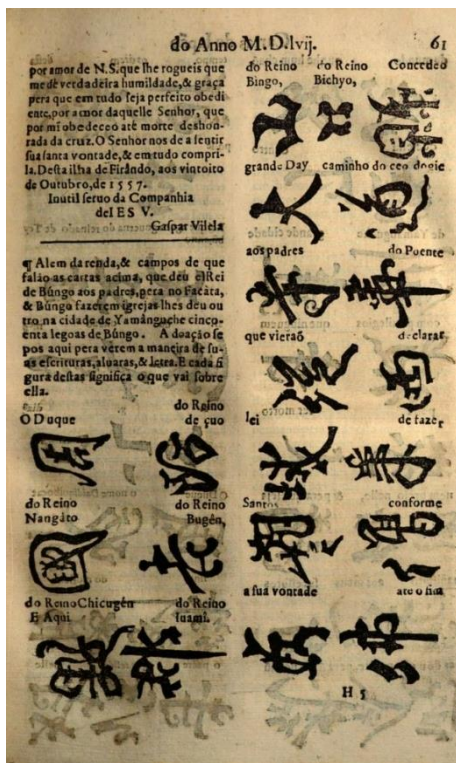 do Anno M.D.lvij. 61
por amor de N.S.que lhe rogueis que
me dè verdadeira humildade,& graça
pera que em tudo seja perfeito obedi
ente, por amor daquelle Senhor, que
por mi obedeceo atè morte deshon-
rada da cruz. O Senhor nos de a sentir
sua santa vontade, & em tudo compri-
la. Desta ilha de Firándo, aos vintoito
de Outubro, de 1557.
Inutil seruo da Companhia
de IESV.
Gaspar Vilela
¶ Alem da renda, & campos de que
falão as cartas acima, que deu elRei
de Búngo aos padres, pera no Facàta,
& Búngo fazerem igrejas lhes deu ou
tro na cidade de Yamánguche cinco-
enta legoas de Búngo. A doação se
pos aqui pera verem a maneira de su-
as escrituras, aluaras, & letra. E cada fi
gura destas significa o que vai sobre
ella.
O Duque do Reino de çuo
周 防
do Reino Nangáto do Reino Bugẽn,
國 吉
do Reino Chicugẽn E Aqui do Reino Iuami.
敷 郡
do Reino Bingo, do Reino Bichyo, Concedeo
山 口 縣
grande Day caminho do ceo dogie
大 道
aos padres do Poente
寺 事
que vieraõ declarar
從 西
lei de fazer
域 來
Santos conforme
朝 之 僧
a sua vontade ate o fim
為 佛
H 5